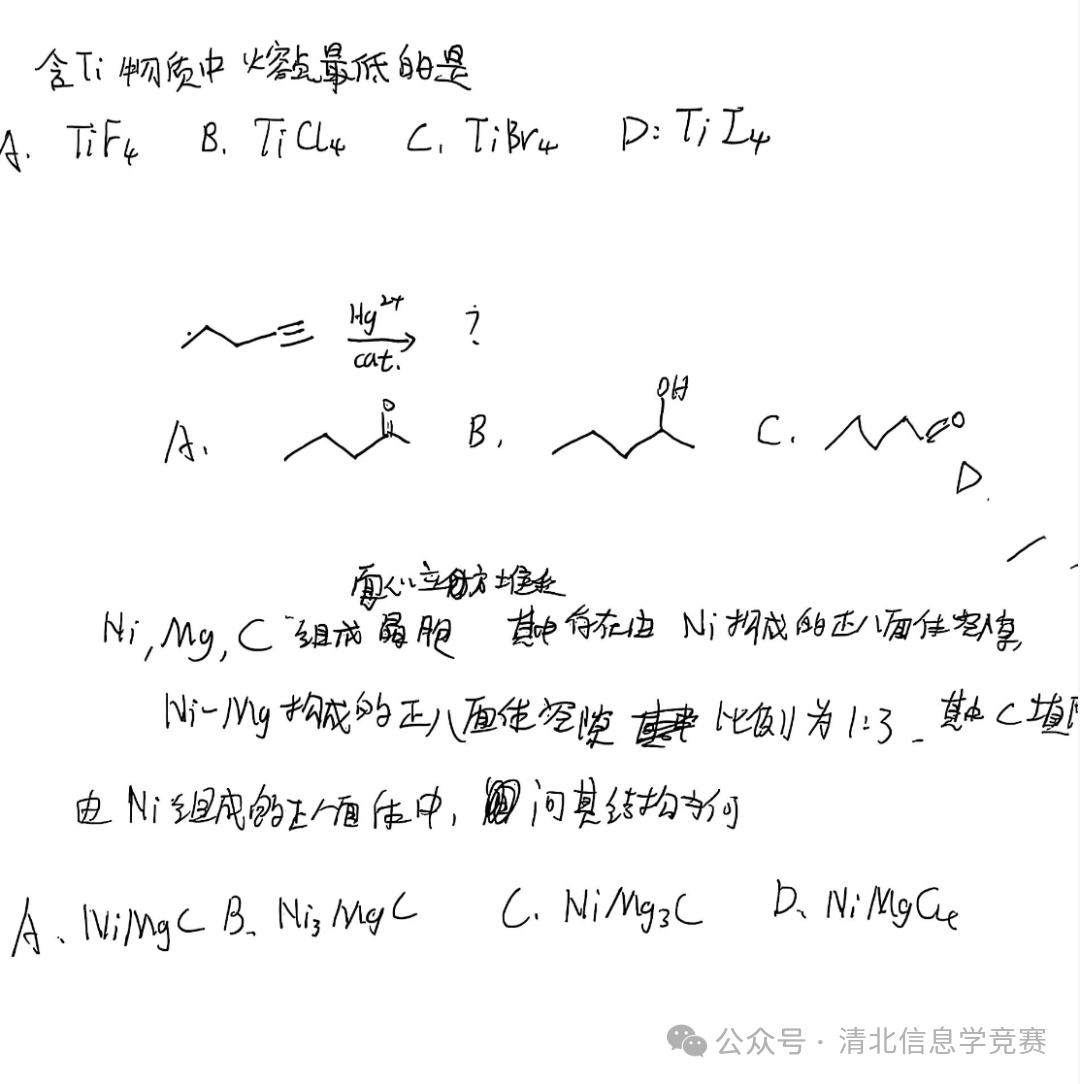 含Ti物质中熔点最低的是
A. TiF₄ B. TiCl₄ C. TiBr₄ D: TiI₄
Hg²⁺
cat.
?
A. O B. OH C. O D.
面心立方堆积
Ni, Mg, C 组成晶胞 其中存在由 Ni 构成的正八面体空隙,
Ni-Mg 构成的正八面体空隙 比例为 1:3 其中 C 填
由 Ni 组成的正八面体中, 问其结构为何
A、NiMgC B、Ni₃MgC C. NiMg₃C D、NiMgC₄
公众号 · 清北信息学竞赛